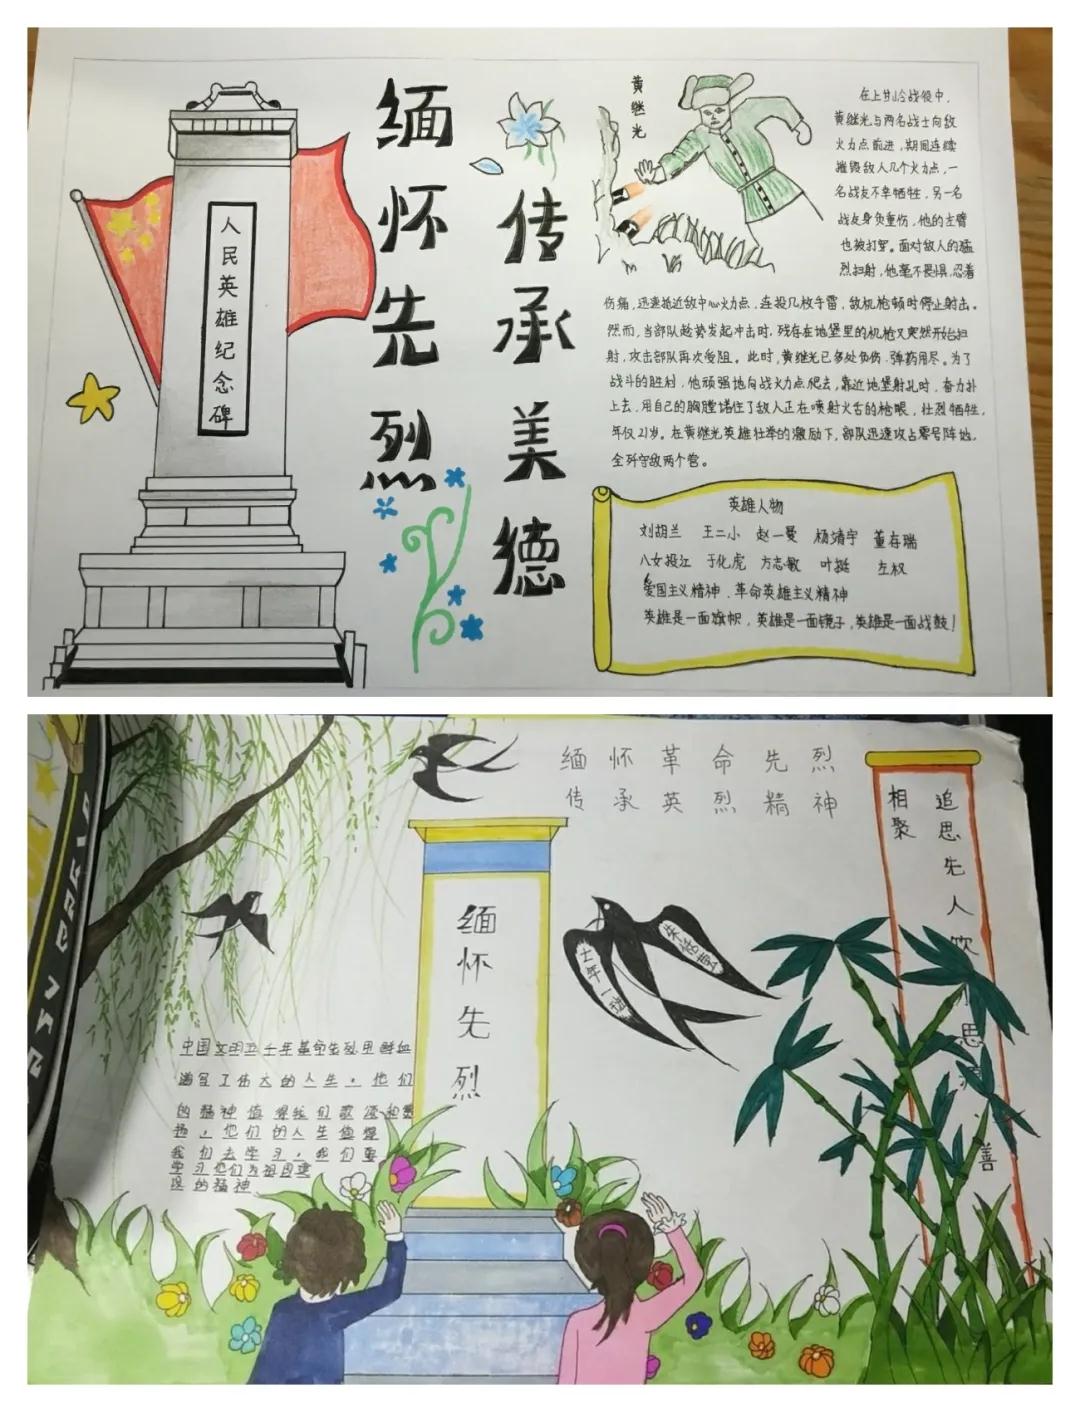 缅怀先烈
传承美德
人民英雄纪念碑
黄继光
在上甘岭战役中，
黄继光与两名战士向敌
火力点前进，期间连续
摧毁敌人几个火力点，一
名战友不幸牺牲，另一名
战友身负重伤，他的左臂
也被打穿。面对敌人的猛
烈扫射，他毫不畏惧，忍着
伤痛，迅速抵近敌中心火力点，连投几枚手雷，敌机枪顿时停止射击。
然而，当部队趁势发起冲击时，残存在地堡里的机枪又突然开始扫
射，攻击部队再次受阻。此时，黄继光已多处负伤，弹药用尽。为了
战斗的胜利，他顽强地向战火力点爬去，靠近地堡射孔时，奋力扑
上去，用自己的胸膛堵住了敌人正在喷射火舌的枪眼，壮烈牺牲，
年仅21岁。在黄继光英雄壮举的激励下，部队迅速攻占零号阵地，
全歼守敌两个营。
英雄人物
刘胡兰 王二小 赵一曼 杨靖宇 董存瑞
八女投江 于化虎 方志敏 叶挺 左权
爱国主义精神、革命英雄主义精神
英雄是一面旗帜，英雄是一面镜子，英雄是一面战鼓！
缅怀革命先烈
传承英烈精神
追思先人饮思
相聚善
缅怀先烈
中国文明五千年革命先烈用鲜血
谱写了伟大的人生，他们
的精神值得我们歌颂和赞
扬，他们的人生值得
我们去学习，我们要
学习他们为祖国
的精神